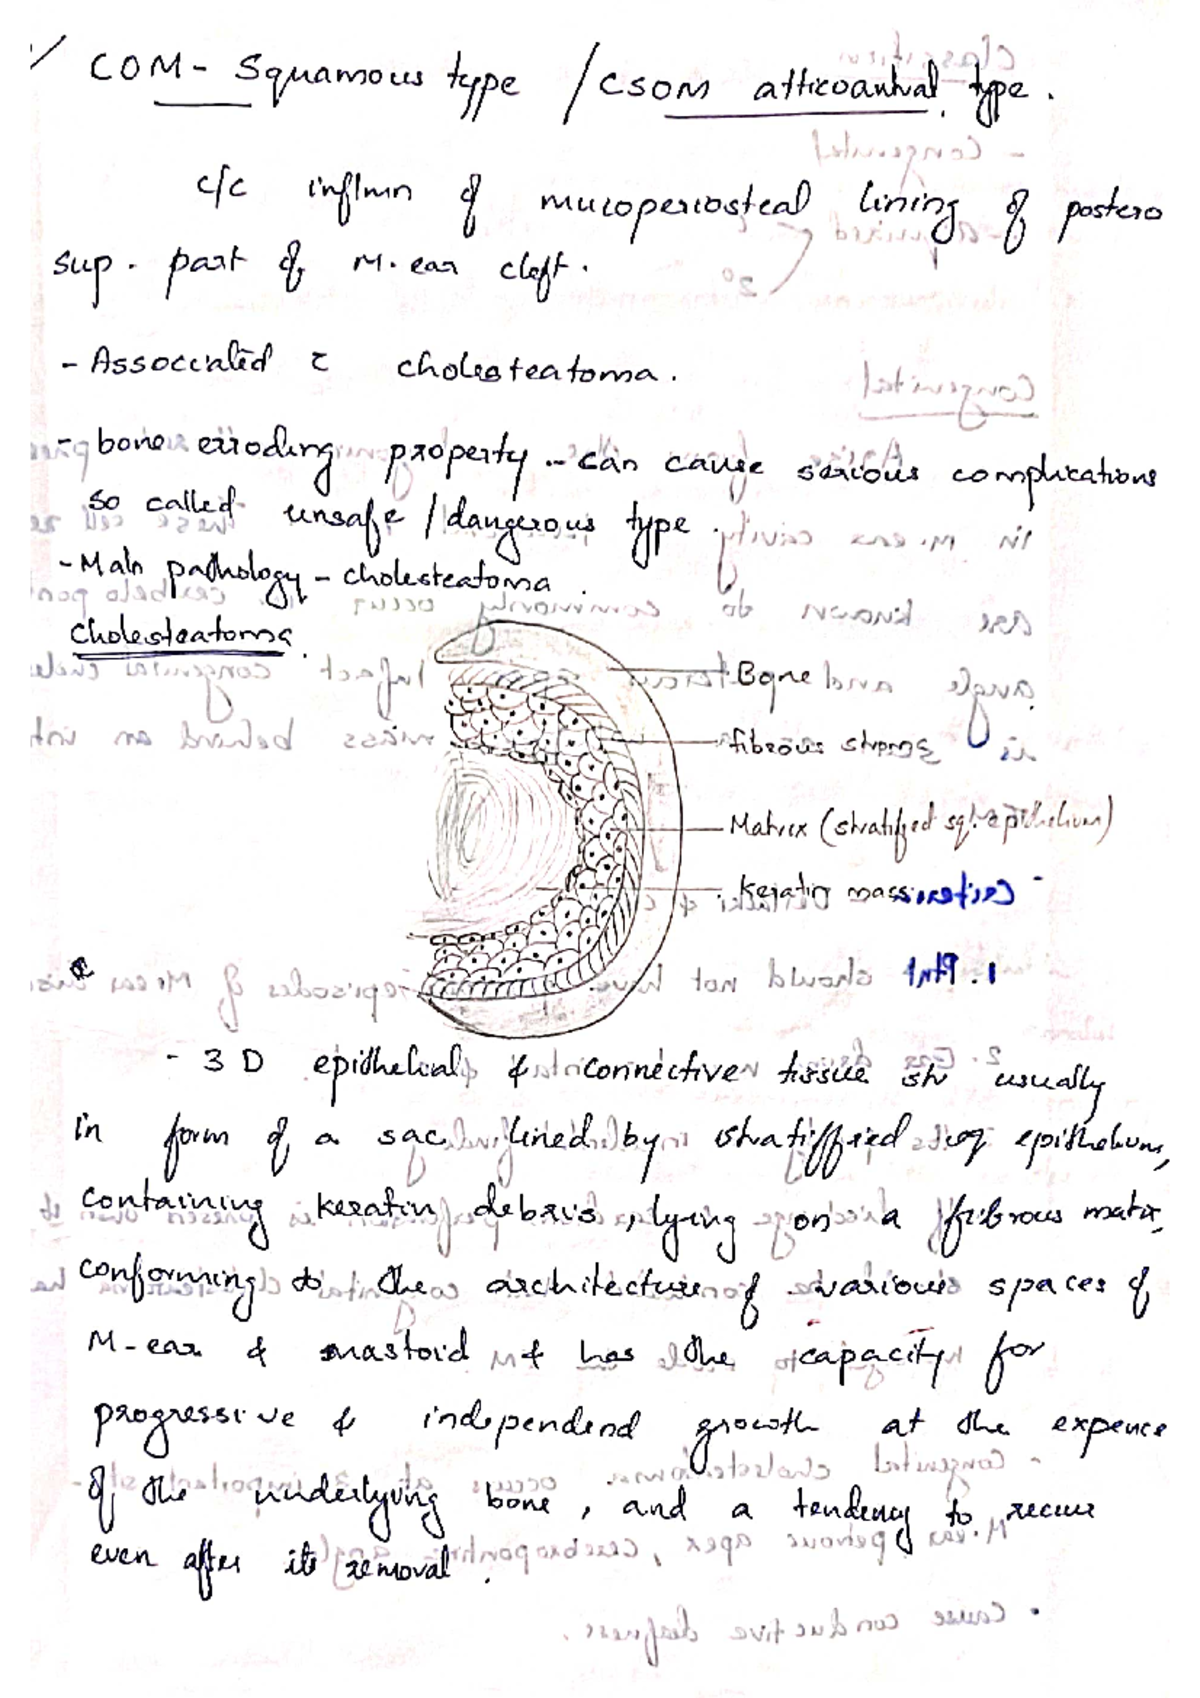 COM - Squamous type / CSOM atticoantral type.
c/c inflmn of mucoperiosteal lining of postero
sup. part of M. ear cleft.
- Associated c̄ cholesteatoma.
- bone erroding property - can cause serious complications
so called unsafe / dangerous type.
- Main pathology - cholesteatoma.
Cholesteatoma.
Bone
fibrous stroma
Matrix (stratified sq. epithelium)
Keratin mass
- 3 D epithelial & connective tissue str usually
in form of a sac lined by stratiffied sq epithelium,
containing keratin debris, lying on a fibrous matrix,
conforming to the architecture of various spaces of
M-ear & mastoid & has the capacity for
progressive & independend growth at the expence
of the underlying bone, and a tendency to recur
even after its removal.